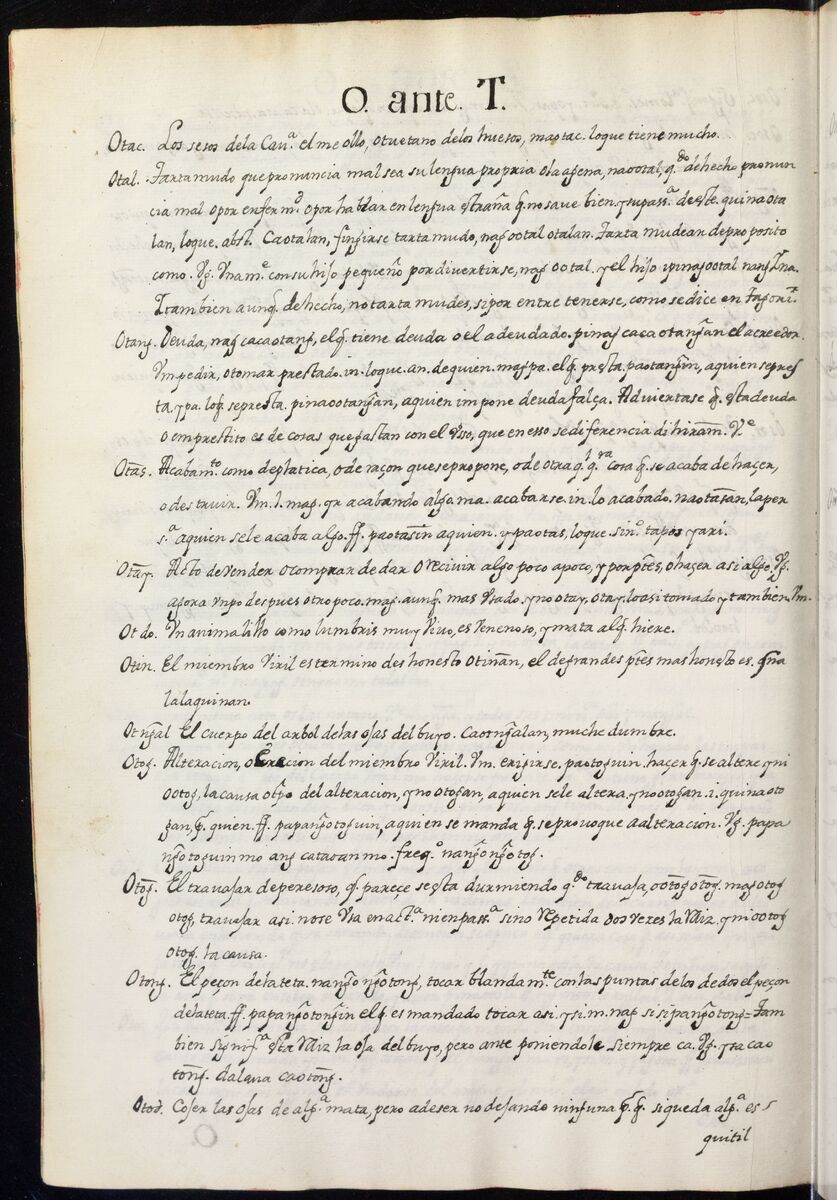 O. ante. T.
Otac. Los sesos dela Cauª. el meollo, otuetano delos huesos, maotac. loque tiene mucho.
Otal. Tartamudo que pronuncia mal sea su lengua propria ola agena, naootal, qdo. de hecho pronun
cia mal o por enfermo. o por hablar en lengua estraña q. no save bien, y supassª. de este. quinaota
lan, loque. abst. Caotalan, fingirse tartamudo, nag ootal otalan. Tartamudear de proposito
como. Vg. Vna me. con su hijo pequeño por divertirse, nag ootal. y el hijo ipinag ootal nang Ina.
Y tambien aunq. de hecho, no tartamudes, si por entre tenerse, como se dice en
Otang. Deuda, nag cacaotang, el q. tiene deuda o el adeudado. pinag cacaotangan el acreedor.
Vm. pedir, o tomar prestado. in. loque. an. de quien. magpa. el q. presta. paotangin, a quien se pres
ta, y pa. lo q. se presta. pinaootangan, a quien impone deuda falça. Adviertase q. esta deuda
o emprestito es de cosas que gastan con el Vsso, que en esso se diferencia di hiram. Ve.
Otas. Acabamto. como de platica, o de raçon que se propone, o de otra qlqra. cosa q. se acaba de haçer,
o destruir. Vm. l. mag. yr acabando algo. ma. acabarse. in. lo acabado. naotasan, la per
sª. a quien se le acaba algo. ff. paotasin a quien. y paotas, loque. sino. tapos yari.
Otay. Acto de vender o comprar de dar o reciuir algo poco apoco, y por ptes, o haçer asi algo. Vg.
agora vn po despues otro poco. mag. aunq. mas vsado. y no otay, otay, lo asi tomado y tambien. Vm.
Ot do. Vn animalillo como lumbris muy vivo, es venenoso, y mata al q. hiere.
Otin. El miembro viril es termino deshonesto otinan, el de grandes ptes mas honesto es.
lalaquinan.
Otngal El cuerpo del arbol de las ojas del buyo. Caotngalan, muchedumbre.
Otog. Alteracion, o Erecion del miembro viril. Vm. erigirse. paotoguin. haçer q. se altere y ni
ootog, la causa obgo del alteracion, y no otogan, a quien se le altera, y nootogan. i. quinaoto
gan, q. quien. ff. papangotoguin, a quien se manda q. se provoque a alteracion. Vg. papa
ngotoguin mo ang catauan mo. freqo. nangongotog.
Otog. El travajar de pereroso, q. pareçe se esta durmiendo qdo travaja, ootog otog. mag otog
otog, travajar asi. no se vsa en actª. ni en passª. sino repetida dos vezes la raiz. y ni ootog
otog. la causa.
Otong. El peçon de la teta. nangongotong, tocar blandamte. con las puntas de los dedos el peçon
de la teta. ff. papangotongin el q. es mandado tocar asi. y si. m. nag sisipangotong = Tam
bien signifª esta raiz la oja del buyo, pero ante poniendole siempre ca. Vg. ysa cao
tong. dalaua caotong.
Otod. Coser las ojas de algª. mata, pero adeser no dejando ninguna pq. q. si queda algª. es
quitil